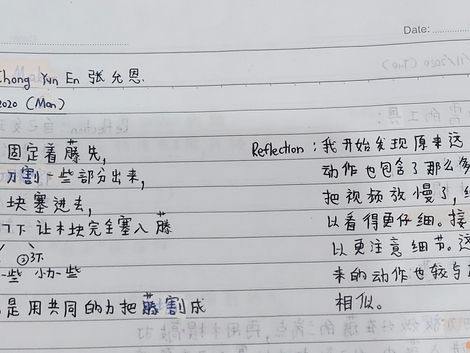 Date:
Chong Yun En 张允恩.
2020 (Mon)
固定着藤先,
刀割一些部分出来,
块塞进去,
下 让木块完全塞入藤
② 3下
一些 小力一些
是用共同的力把藤割成
Reflection : 我开始发现原来这
动作也包含了那么多
把视频放慢了,
以看得更仔细。接
以更注意细节。这
来的动作也较与
相似。